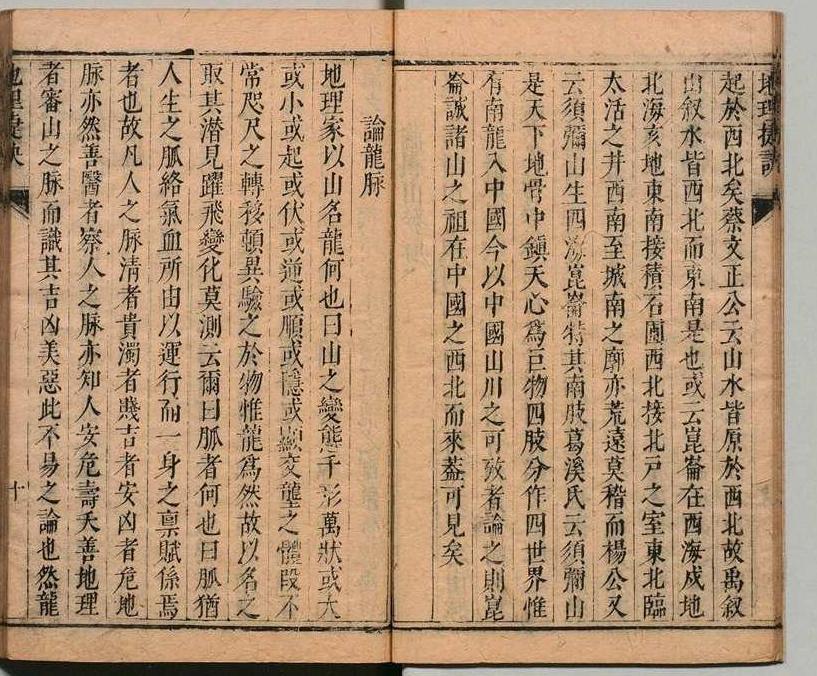 地理捷訣
起於西北矣蔡文正公云山水皆原於西北故禹敘
山敘水皆西北而東南是也或云崑崙在西海戍地
北海亥地東南接積石圃西北接北戶之室東北臨
太活之井西南至城南之廓亦荒遠莫稽而楊公又
云須彌山生四派崑崙特其南肢葛溪氏云須彌山
是天下地骨中鎮天心為巨物四肢分作四世界惟
有南龍入中國今以中國山川之可攷者論之則崑
崙誠諸山之祖在中國之西北而來葢可見矣
論龍脉
地理家以山名龍何也曰山之變態千形萬狀或大
或小或起或伏或逆或順或隱或顯支壟之體段不
常咫尺之轉移頓異驗之於物惟龍為然故以名之
取其潛見躍飛變化莫測云爾曰脈者何也曰脈猶
人生之脈絡氣血所由以運行而一身之稟賦係焉
者也故凡人之脈清者貴濁者賤吉者安凶者危地
脉亦然善醫者察人之脉亦知人安危壽夭善地理
者審山之脉而識其吉凶美惡此不易之論也然龍
地理捷訣
十